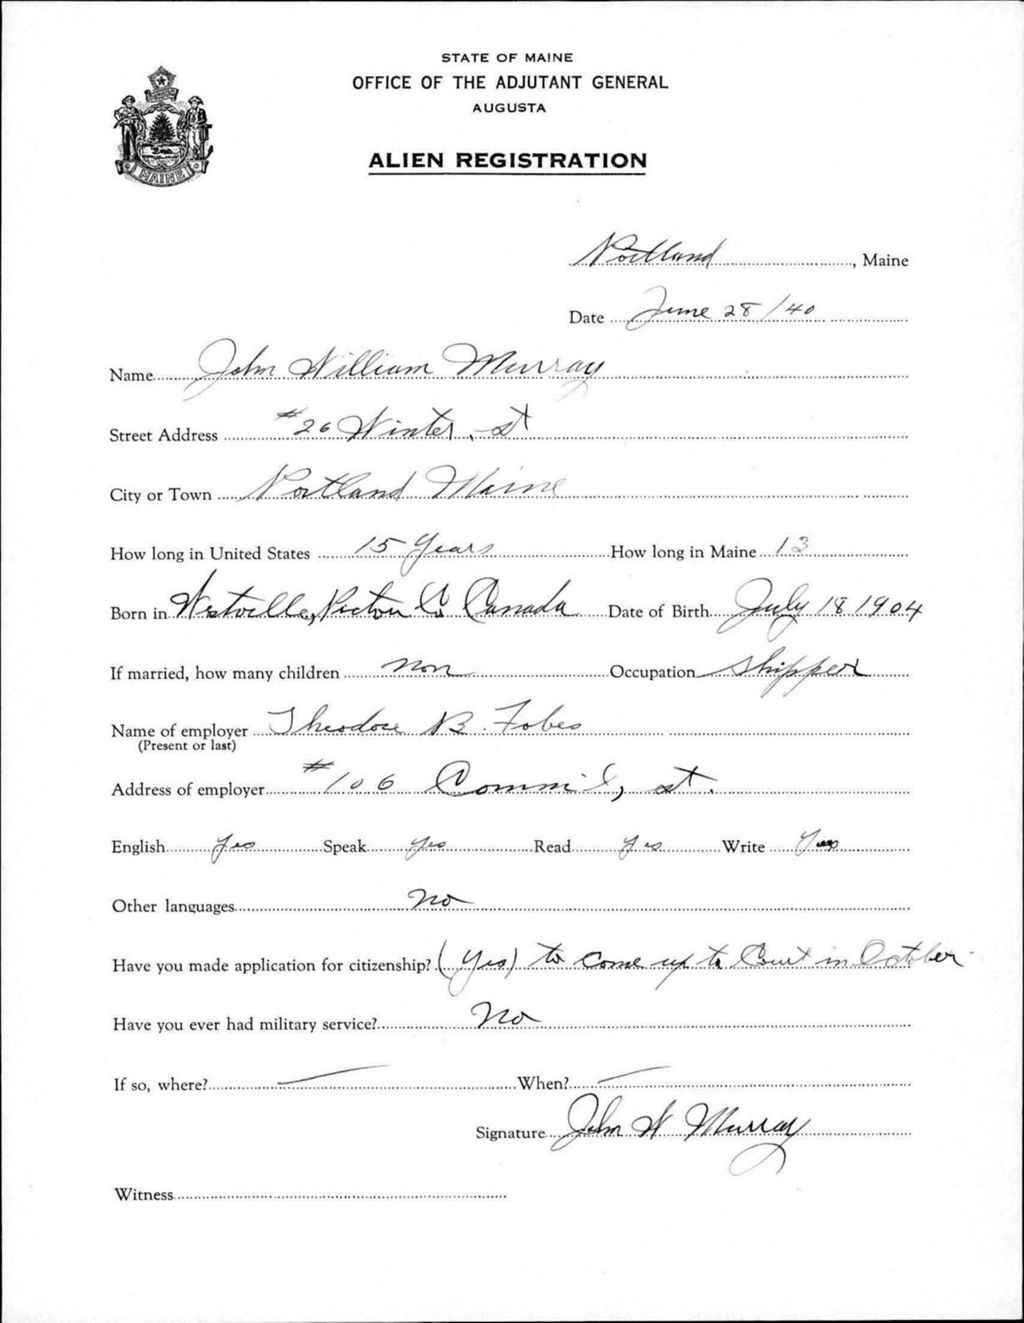 STATE OF MAINE
OFFICE OF THE ADJUTANT GENERAL
AUGUSTA
ALIEN REGISTRATION
MAINE
Portland, Maine
Date June 28/40
Name John William Murray
Street Address #26 Winter, st
City or Town Portland Maine
How long in United States 15 Years How long in Maine 13
Born in Westville, Pictou Co Canada Date of Birth July 18 1904
If married, how many children non Occupation Shipper
Name of employer Theodore B. Fobes
(Present or last)
Address of employer #106 Comm'l, st.
English yes Speak yes Read yes Write Yes
Other languages no
Have you made application for citizenship? (Yes) to come up to Court in October
Have you ever had military service? No
If so, where? — When? —
Signature John W Murray
Witness